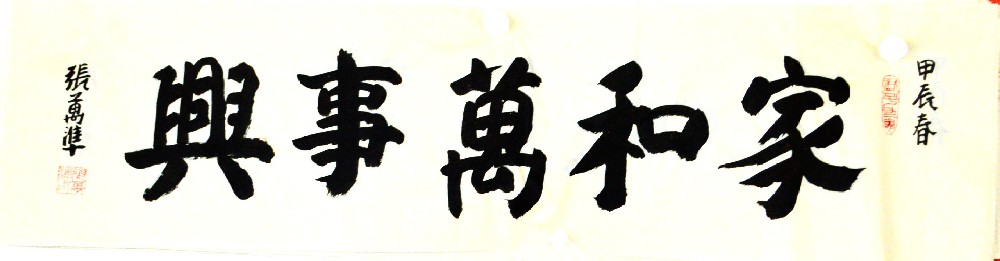 甲辰春
家和萬事興
張萬準